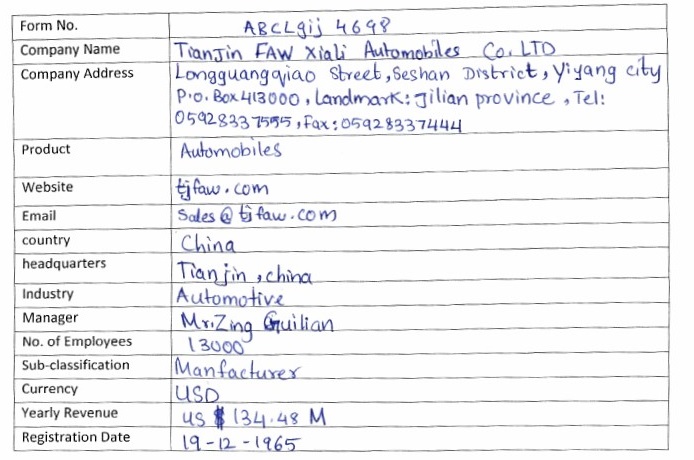 Form No. ABCLgij 4698
Company Name TianJin FAW Xiali Automobiles Co. LTD
Company Address Longguangqiao Street, Seshan District, Yiyang city
P.o. Box 413000, Landmark: Jilian province, Tel:
05928337555, Fax: 05928337444
Product Automobiles
Website tjfaw.com
Email Sales@tjfaw.com
country China
headquarters Tianjin, china
Industry Automotive
Manager Mr. Zing Guilian
No. of Employees 13000
Sub-classification Manfacturer
Currency USD
Yearly Revenue US $ 134.48 M
Registration Date 19-12-1965